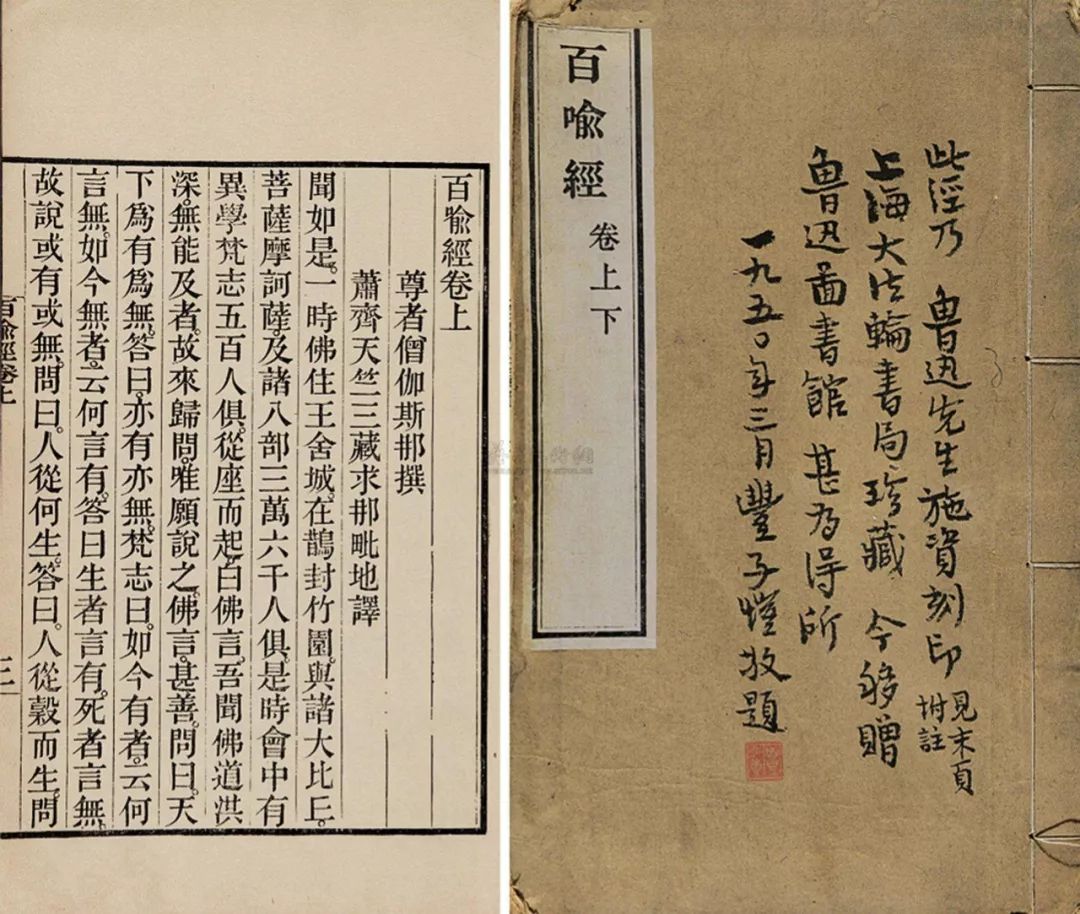 百喩經卷上
尊者僧伽斯那撰
蕭齊天竺三藏求那毗地譯
聞如是。一時佛住王舍城。在鵲封竹園。與諸大比丘。
菩薩摩訶薩。及諸八部三萬六千人俱。是時會中有
異學梵志五百人俱。從座而起。白佛言。吾聞佛道洪
深。無能及者。故來歸問。唯願說之。佛言。甚善。問曰。天
下爲有爲無。答曰。亦有亦無。梵志曰。如今有者。云何
言無。如今無者。云何言有。答曰。生者言有。死者言無。
故說或有或無。問曰。人從何生。答曰。人從穀而生。問
百喩經卷上
三
百喩經
卷上下
此經乃 魯迅先生施資刻印 見末頁附註
上海大法輪書局珍藏 今移贈
魯迅圖書館 甚爲得所
一九五〇年三月豐子愷敬題